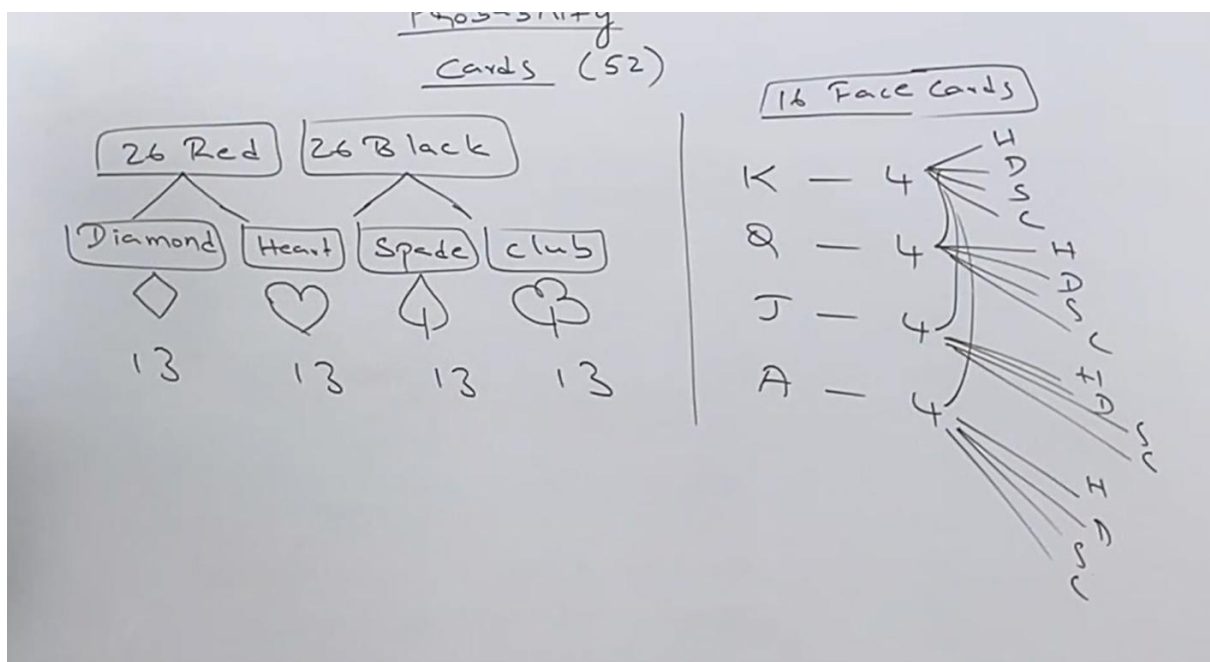 Probability
Cards (52)
26 Red 26 Black
Diamond Heart Spade Club
13 13 13 13
16 Face Cards
K — 4 H D S C
Q — 4 H D S C
J — 4 H D S C
A — 4 H D S C